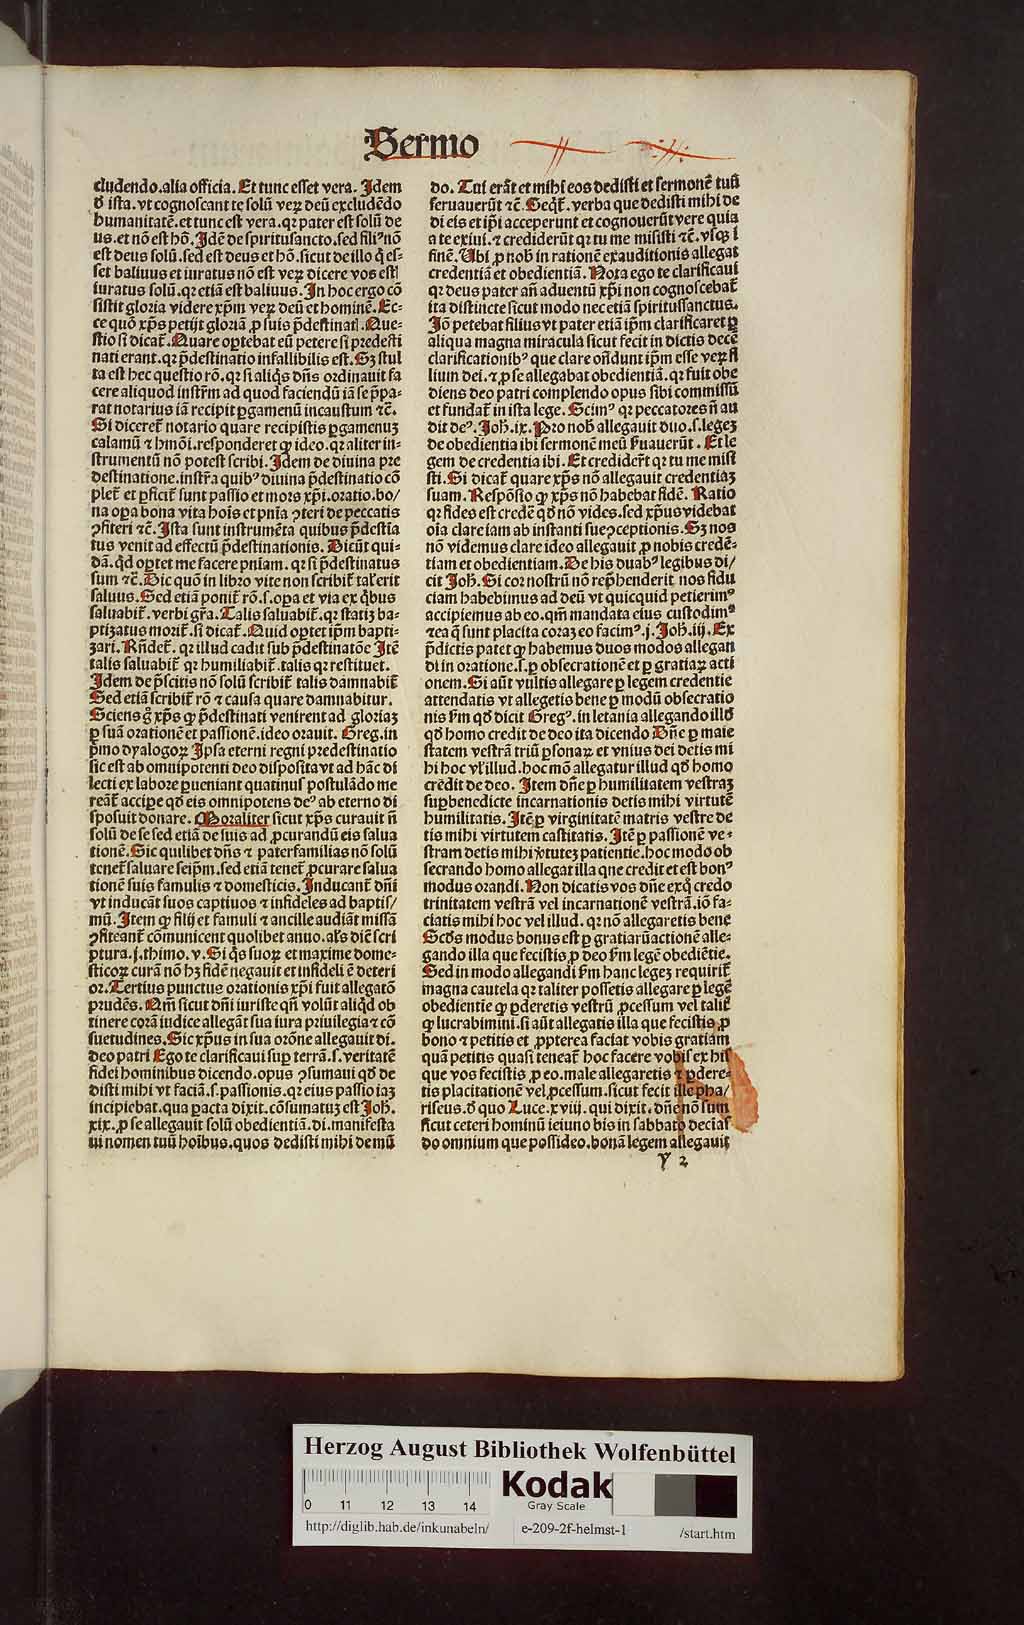 Sermo
cludendo.alia officia. Et tunc esset vera. Idem
đ ista.vt cognoscant te solū veꝝ deū excludēdo
humanitatē.et tunc est vera.qꝛ pater est solū de
us.et nō est hō. Idē de spiritusancto.sed filiꝰ nō
est deus solū.sed est deus et hō.sicut de illo q̄ es-
set baliuus et iuratus nō est veꝝ dicere vos est
iuratus solū.qꝛ etiā est baliuus. In hoc ergo cō
sistit gloria videre xp̄m veꝝ deū et hominē. Ec-
ce quō xp̄s petijt gloriā ꝓ suis p̄destinat. Que-
stio si dicat̄. Quare oꝑtebat eū petere si predesti
nati erant.qꝛ p̄destinatio infallibilis est. Sꝫ stul
ta est hec questio rō.qꝛ si aliq̄s dn̄s ordinauit fa
cere aliquod instr̄m ad quod faciendū iā se p̄pa-
rat notarius iā recipit ꝑgamenū incaustum ⁊c̄.
Si diceret̄ notario quare recipistis ꝑgamenuꝫ
calamū ⁊ hmōi.responderet ꝙ ideo.qꝛ aliter in-
strumentū nō potest scribi. Idem de diuina pre
destinatione.instr̄a quibꝰ diuina p̄destinatio cō
plet̄ et ꝑficit̄ sunt passio et mors xp̄i.oratio.bo/
na oꝑa bona vita hoīs et pnīa ꝯteri de peccatis
ꝯfiteri ⁊c̄. Ista sunt instrumēta quibus p̄destia
tus venit ad effectū p̄destinationis. Dicūt qui-
dā.q̄d oꝑtet me facere pniam.qꝛ si p̄destinatus
sum ⁊c̄. Hic quō in libro vite non scribit̄ tal̓ erit
saluus. Sed etiā ponit̄ rō.s.oꝑa et via ex q̄bus
saluabit̄.verbi gr̄a. Talis saluabit̄.qꝛ statiꝫ ba-
ptizatus morit̄.si dicat̄. Quid oꝑtet ip̄m bapti-
zari. Rn̄det̄. qꝛ illud cadit sub p̄destinatōe Itē
talis saluabit̄ qꝛ humiliabit̄.talis qꝛ restituet.
Idem de p̄scitis nō solū scribit̄ talis damnabit̄
Sed etiā scribit̄ rō ⁊ causa quare damnabitur.
Sciens g̊ xp̄s ꝙ p̄destinati venirent ad gloriaꝫ
ꝑ suā orationē et passionē.ideo orauit. Greg.in
p̄mo dyalogoꝝ Ipsa eterni regni predestinatio
sic est ab omnipotenti deo disposita vt ad hāc di
lecti ex labore ꝑueniant quatinus postulādo me
reāt̄ accipe qd̄ eis omnipotens deꝰ ab eterno di
sposuit donare. Moraliter sicut xp̄s curauit n̄
solū de se sed etiā de suis ad ꝓcurandū eis salua
tionē. Sic quilibet dn̄s ⁊ paterfamilias nō solū
tenet̄ saluare seip̄m.sed etiā tenet̄ ꝓcurare salua
tionē suis famulis ⁊ domesticis. Inducant̄ dn̄i
vt inducāt suos captiuos ⁊ infideles ad baptis/
mū. Item ꝙ filij et famuli ⁊ ancille audiāt missā
ꝯfiteant̄ cōmunicent quolibet anuo.al̓s diē scri
ptura.j.thimo.v. Si q̄s suoꝝ et maxime dome-
sticoꝝ curā nō hꝫ fidē negauit et infideli ē deteri
or. Tertius punctus orationis xp̄i fuit allegatō
prudēs. Nam̄ sicut dn̄i iuriste qn̄ volūt aliq̄d ob
tinere corā iudice allegāt sua iura priuilegia ⁊ cō
suetudines. Sic xp̄us in sua orōne allegauit di.
deo patri Ego te clarificaui suꝑ terrā.s.veritatē
fidei hominibus dicendo.opus ꝯsumaui qd̄ de
disti mihi vt faciā.s.passionis.qꝛ eius passio iaꝫ
incipiebat.qua ꝑacta dixit.cōsumatuꝫ est Joh̄.
xix.ꝓ se allegauit solū obedientiā.di.manifesta
ui nomen tuū hoībus.quos dedisti mihi de mū
do. Tui erāt et mihi eos dedisti et sermonē tuū
seruauerūt ⁊c̄. Seq̄t̄. verba que dedisti mihi de
di eis et ip̄i acceperunt et cognouerūt vere quia
a te exiui.⁊ crediderūt qꝛ tu me misisti ⁊c̄. vsqꝫ ī
finē. Ubi ꝓ nob̄ in rationē exauditionis allegat
credentiā et obedientiā. Nota ego te clarificaui
qꝛ deus pater añ aduentū xp̄i non cognoscebat̄
ita distincte sicut modo nec etiā spiritussanctus.
Iō petebat filius vt pater etiā ip̄m clarificaret ꝑ
aliqua magna miracula sicut fecit in dictis decē
clarificationibꝰ que clare oñdunt ip̄m esse veꝝ fi
lium dei.⁊ ꝓ se allegabat obedientiā.qꝛ fuit obe
diens deo patri complendo opus sibi commissū
et fundat̄ in ista lege. Scimꝰ qꝛ peccatores n̄ au
dit deꝰ. Joh̄.ix. Pro nob̄ allegauit duo.s.legeꝫ
de obedientia ibi sermonē meū ẜuauerūt. Et le
gem de credentia ibi. Et crediderūt qꝛ tu me misi
sti. Si dicat̄ quare xp̄s nō allegauit credentiaꝫ
suam. Respōsio ꝙ xp̄s nō habebat fidē. Ratio
qꝛ fides est credē qd̄ nō vides.sed xp̄us videbat
oīa clare iam ab instanti sue ꝯceptionis. Sꝫ nos
nō videmus clare ideo allegauit ꝓ nobis credē-
tiam et obedientiam. De his duabꝰ legibus di/
cit Joh̄. Si cor nostrū nō rep̄henderit nos fidu
ciam habebimus ad deū vt quicquid petierimꝰ
accipiemus ab eo.qm̄ mandata eius custodimꝰ
⁊ ea q̄ sunt placita coraꝫ eo facimꝰ.j. Joh̄.iij. Ex
p̄dictis patet ꝙ habemus duos modos allegan
di in oratione.s.ꝑ obsecrationē et ꝑ gratiaꝝ acti
onem. Si aūt vultis allegare ꝑ legem credentie
attendatis vt allegetis bene ꝑ modū obsecratio
nis ẜm qd̄ dicit Gregꝰ.in letania allegando illd̄
qd̄ homo credit de deo ita dicendo Dn̄e ꝑ maie
statem vestrā triū ꝑsonaꝝ et vnius dei detis mi
hi hoc vl̓ illud.hoc mō allegatur illud qd̄ homo
credit de deo. Item dn̄e ꝑ humilitatem vestraꝫ
suꝑbenedicte incarnationis detis mihi virtutē
humilitatis. Itē ꝑ virginitatē matris vestre de
tis mihi virtutem castitatis. Itē ꝑ passionē ve-
stram detis mihi v̓tuteꝫ patientie.hoc modo ob
secrando homo allegat illa que credit et est bonꝰ
modus orandi. Non dicatis vos dn̄e exq̊ credo
trinitatem vestrā vel incarnationē vestrā.iō fa-
ciatis mihi hoc vel illud.qꝛ nō allegaretis bene
Scd̄s modus bonus est ꝑ gratiarūactionē alle-
gando illa que fecistis ꝓ deo ẜm legē obediētie.
Sed in modo allegandi ẜm hanc legeꝫ requirit̄
magna cautela qꝛ taliter possetis allegare ꝑ legē
obedientie ꝙ ꝑderetis vestrū ꝓcessum vel talit̄
ꝙ lucrabimini.si aūt allegatis illa que fecistis ꝓ
bono ⁊ petitis et ꝓpterea faciat vobis gratiam
quā petitis quasi teneat̄ hoc facere vobis ex his
que vos fecistis ꝓ eo.male allegaretis ⁊ ꝑdere-
tis placitationē vel ꝓcessum.sicut fecit ille pha/
riseus.đ quo Luce.xviij. qui dixit. dn̄e nō sum
sicut ceteri hominū ieiuno bis in sabbato decias
do omnium que possideo.bonā legem allegauit
y 2
Herzog August Bibliothek Wolfenbüttel
Kodak
Gray Scale
0 11 12 13 14
http://diglib.hab.de/inkunabeln/ e-209-2f-helmst-1 /start.htm